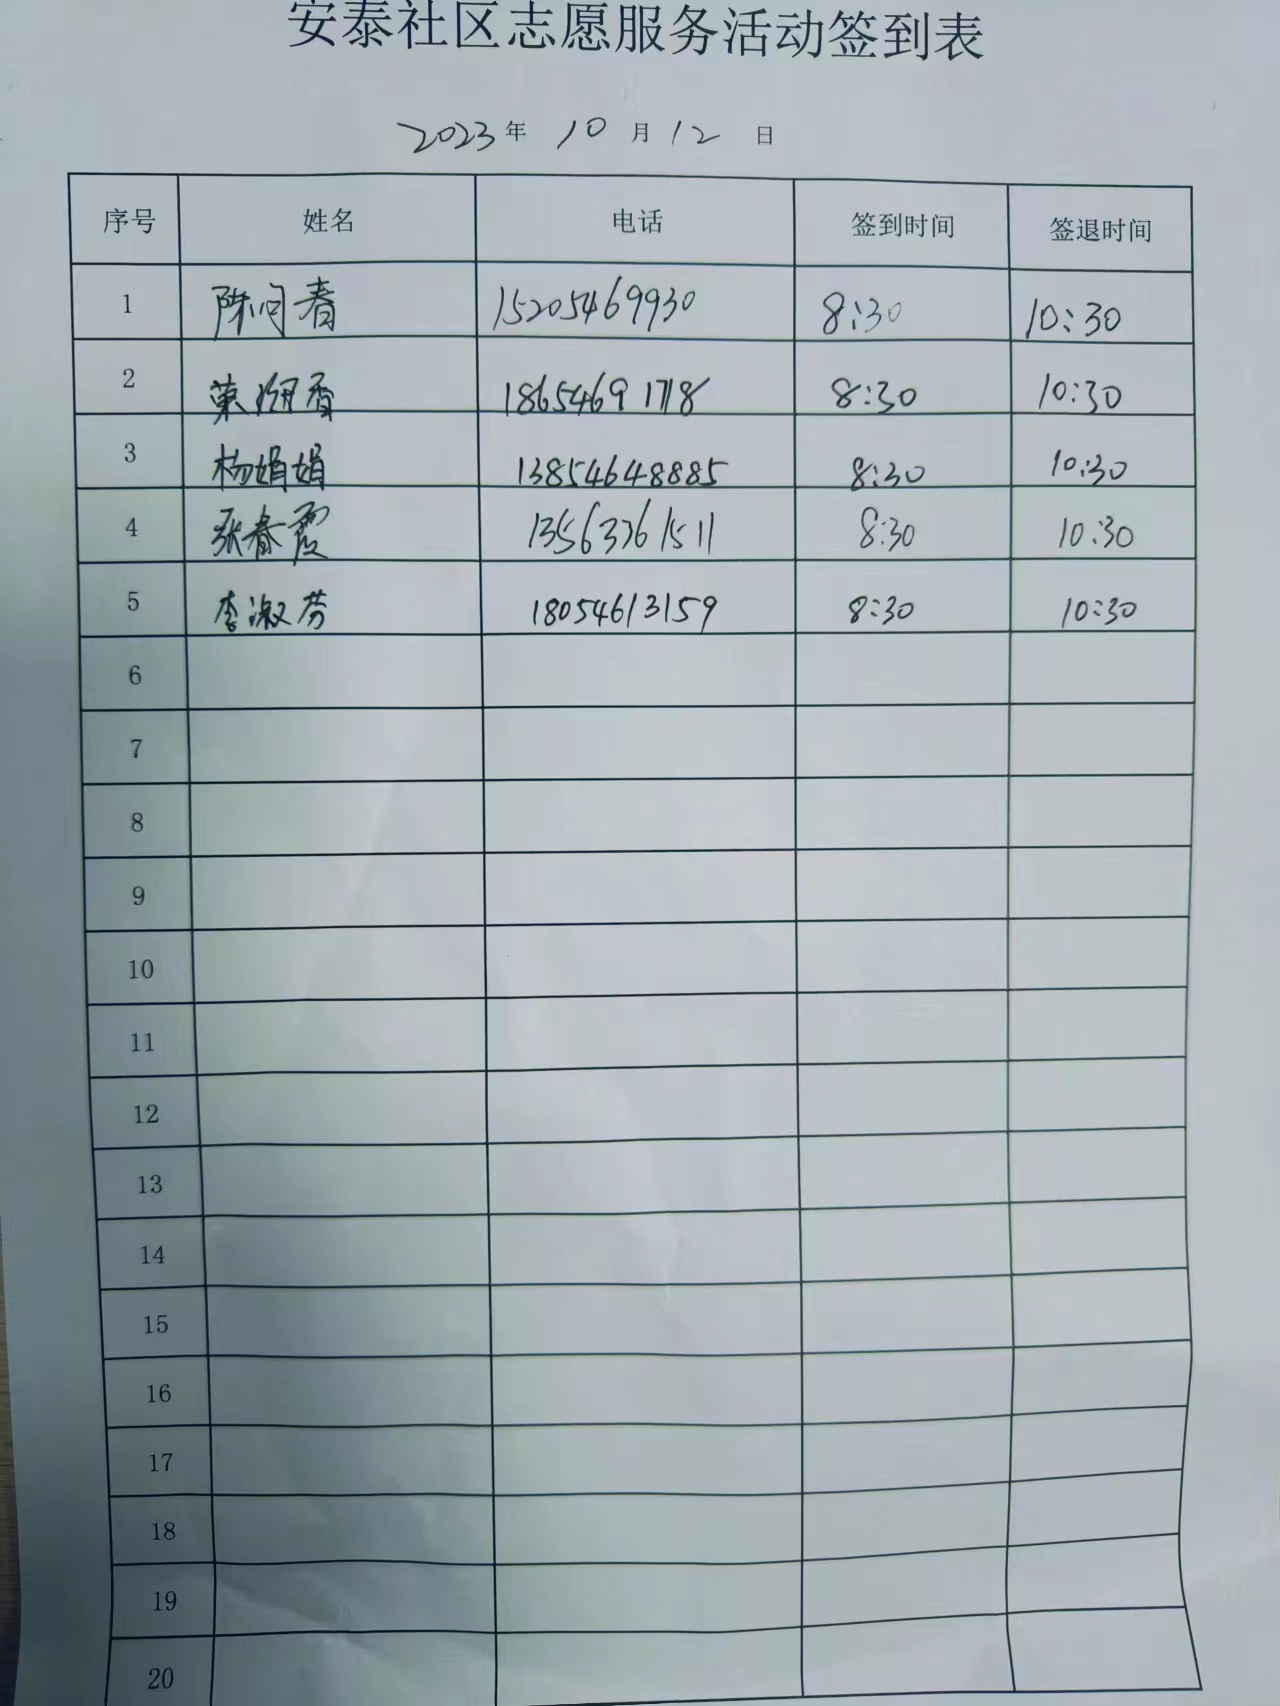 安泰社区志愿服务活动签到表
2023年 10月12日
序号 姓名 电话 签到时间 签退时间
1 陈问春 15205469930 8:30 10:30
2 香 18654691718 8:30 10:30
3 杨娟娟 13854648885 8:30 10:30
4 张春霞 13563361511 8:30 10:30
5 李淑芬 18054613159 8:30 10:30
6
7
8
9
10
11
12
13
14
15
16
17
18
19
20